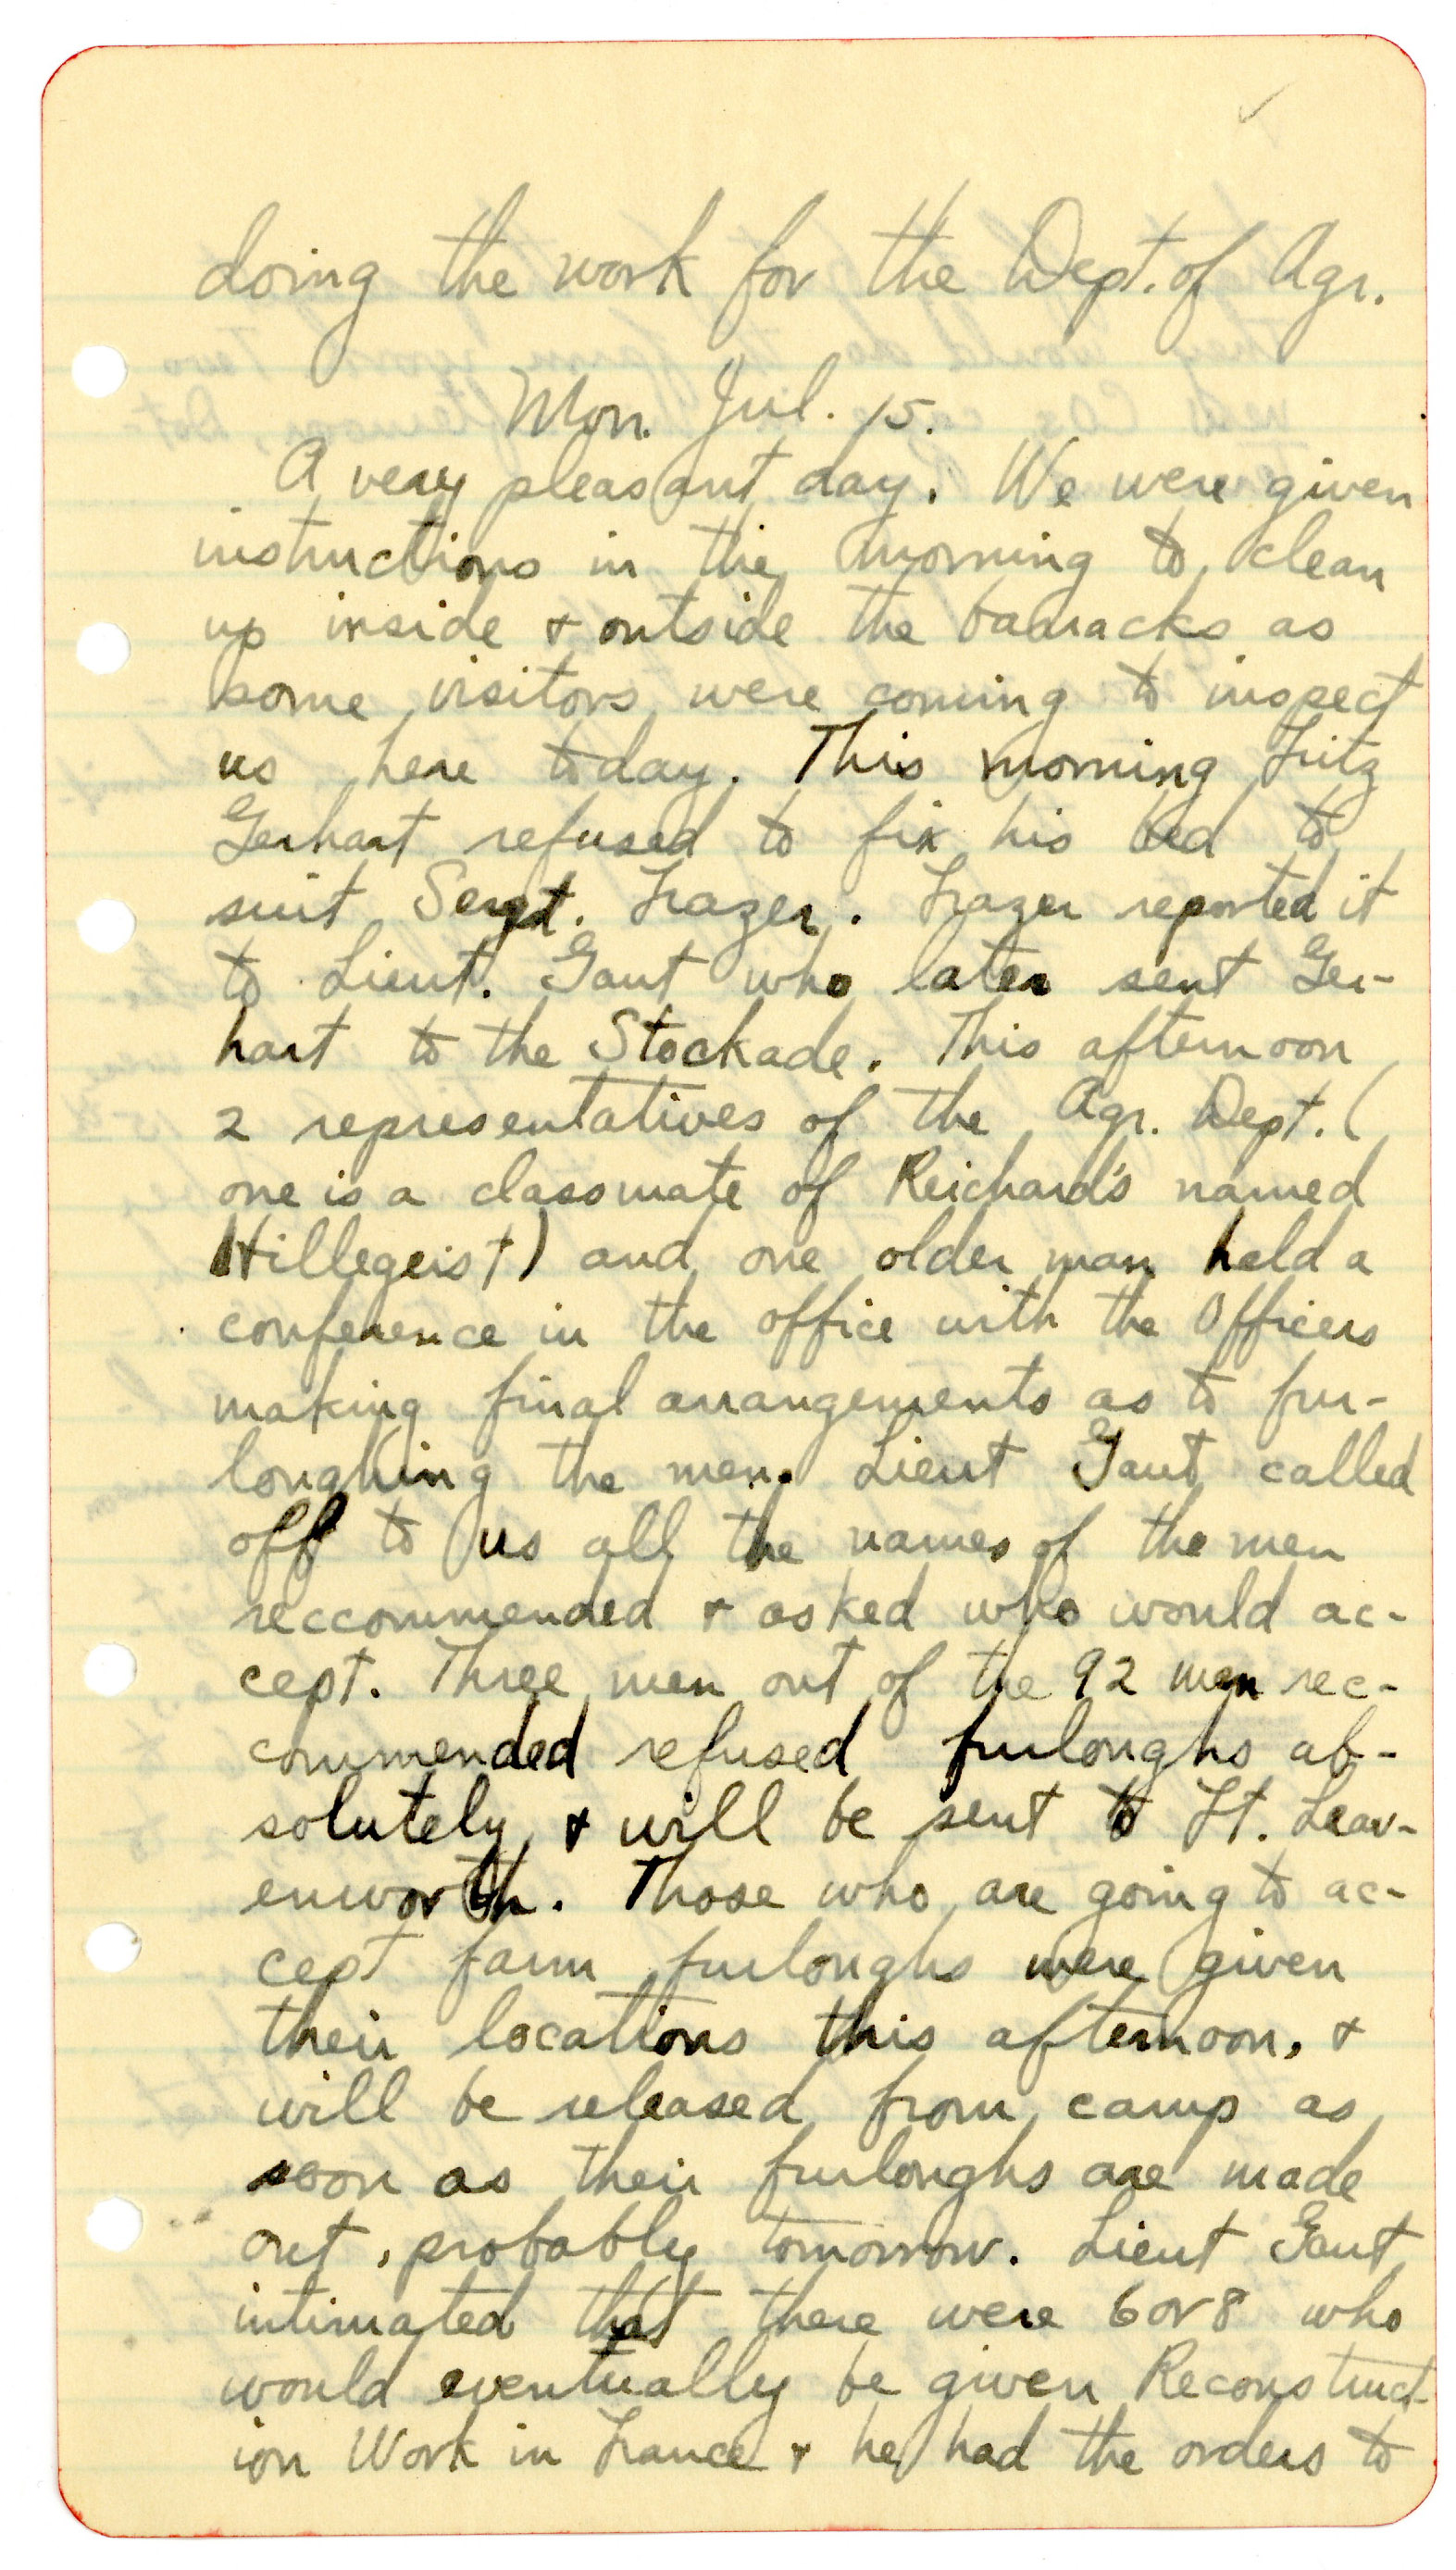 doing the work for the Dept. of Agr.
Mon. Jul. 15.
A very pleasant day. We were given
instructions in the morning to clean
up inside & outside the barracks as
some visitors were coming to inspect
us here today. This morning Fritz
Gerhart refused to fix his bed to
suit Sergt. Frazer. Frazer reported it
to Lieut. Gant who later sent Ger-
hart to the Stockade. This afternoon
2 representatives of the Agr. Dept. (
one is a classmate of Reichard's named
Hillegeist) and one older man held a
conference in the office with the Officers
making final arrangements as to fur-
loughing the men. Lieut Gant called
off to us all the names of the men
reccommended & asked who would ac-
cept. Three men out of the 92 men rec-
commended refused furloughs ab-
solutely & will be sent to Ft. Leav-
enworth. Those who are going to ac-
cept farm furloughs were given
their locations this afternoon, &
will be released from camp as
soon as their furloughs are made
out, probably tomorrow. Lieut Gant
intimated that there were 6 or 8 who
would eventually be given Reconstruct-
ion Work in France & he had the orders to